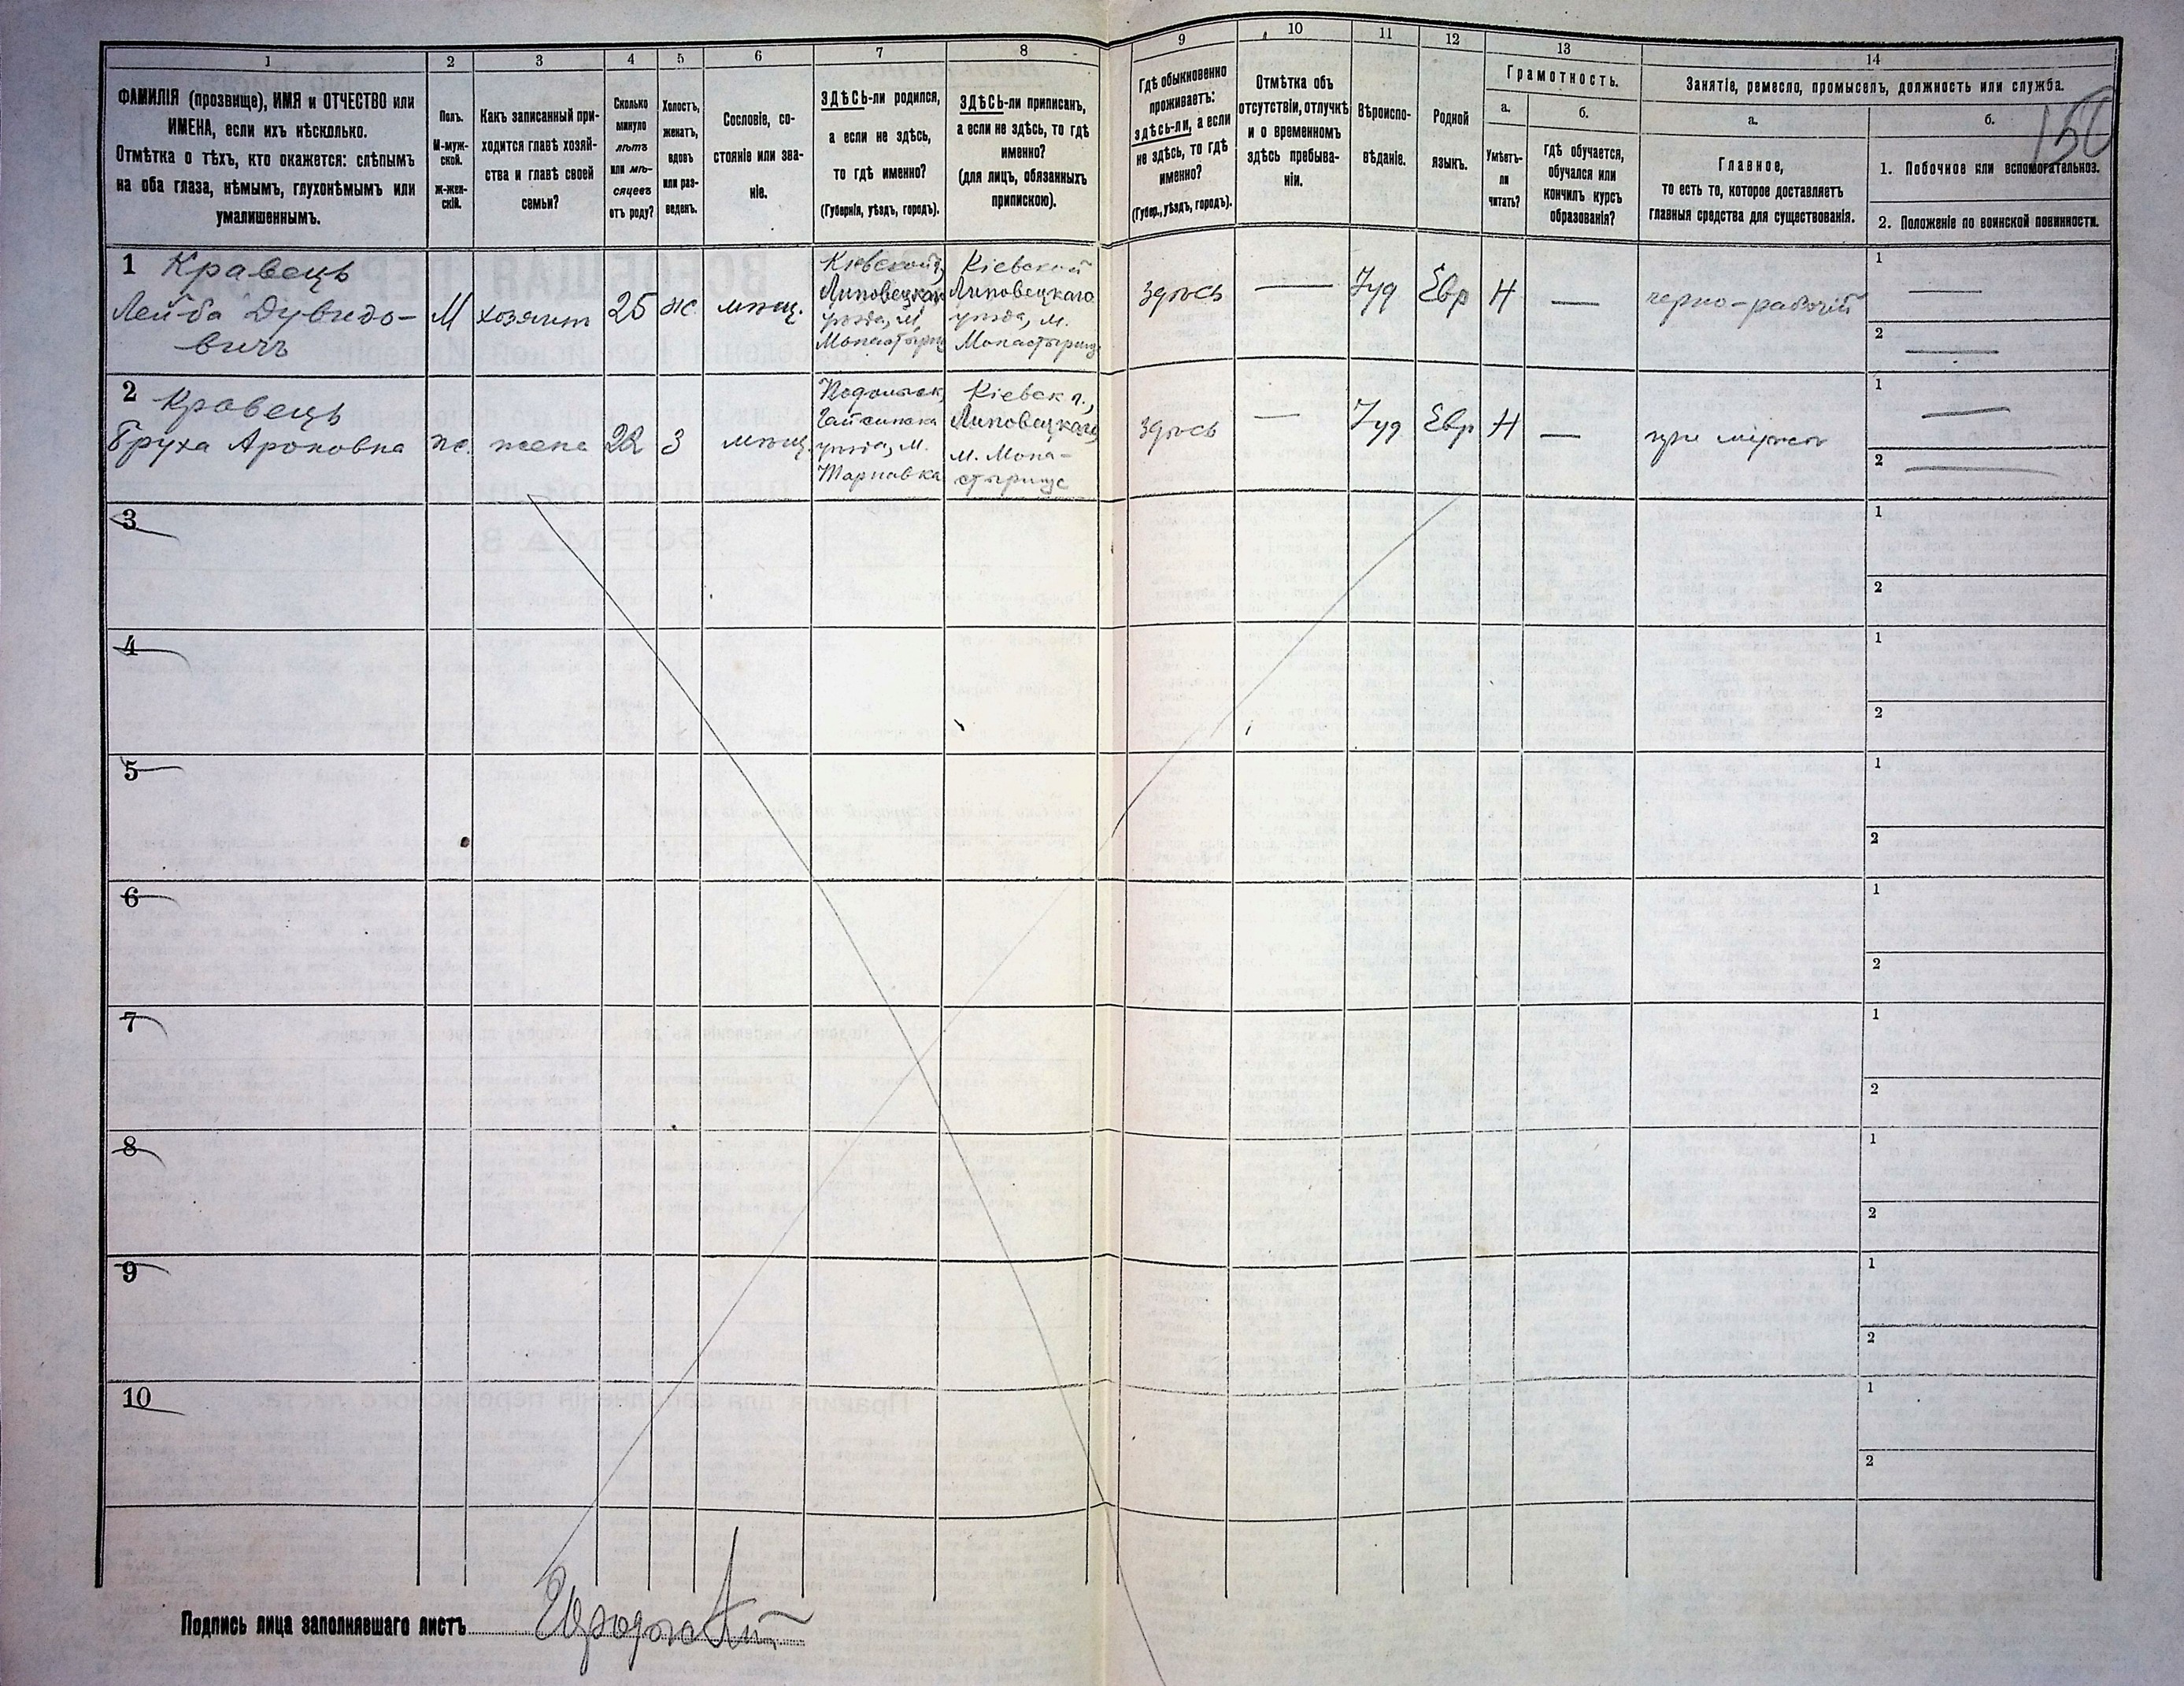 1
2
3
4
5
6
7
8
9
10
11
12
13
14
ФАМИЛІЯ (прозвище), ИМЯ и ОТЧЕСТВО или
ИМЕНА, если ихъ нѣсколько.
Отмѣтка о тѣхъ, кто окажется: слѣпымъ
на оба глаза, нѣмымъ, глухонѣмымъ или
умалишеннымъ.
Полъ.
М-муж-
ской.
ж-жен-
скій.
Какъ записанный при-
ходится главѣ хозяй-
ства и главѣ своей
семьи?
Сколько
минуло
лѣтъ
или мѣ-
сяцевъ
отъ роду?
Холостъ,
женатъ,
вдовъ
или раз-
веденъ.
Сословіе, со-
стояніе или зва-
ніе.
ЗДѢСЬ-ли родился,
а если не здѣсь,
то гдѣ именно?
(Губернія, уѣздъ, городъ).
ЗДѢСЬ-ли приписанъ,
а если не здѣсь, то гдѣ
именно?
(для лицъ, обязанныхъ
припискою).
Гдѣ обыкновенно
проживаетъ:
здѣсь-ли, а если
не здѣсь, то гдѣ
именно?
(Губер., уѣздъ, городъ).
Отмѣтка объ
отсутствіи, отлучкѣ
и о временномъ
здѣсь пребыва-
ніи.
Вѣроиспо-
вѣданіе.
Родной
языкъ.
Грамотность.
а.
Умѣетъ-
ли
читать?
б.
гдѣ обучается,
обучался или
кончилъ курсъ
образованія?
Занятіе, ремесло, промыселъ, должность или служба.
а.
Главное,
то есть то, которое доставляетъ
главныя средства для существованія.
б.
150
1. Побочное или вспомогательное.
2. Положеніе по воинской повинности.
1 Кравецъ
Лейба Дувидо-
вичъ
М
хозяинъ
25
ж.
мѣщ.
Кіевской г,
Липовецкаго
уѣзда, м.
Монастырищ
Кіевской
Липовецкаго
уѣзда, м.
Монастырище
здѣсь
—
Іуд
Евр
Н
—
черно-рабочій
1 —
2 —
2 Кравецъ
Бруха Ароновна
ж.
жена
22
З
мѣщ.
Подольск,
Гайсинска
уѣзда, м.
Тарнавка
Кіевск г.,
Липовецкаго,
м. Мона-
стырище
здѣсь
—
Іуд
Евр
Н
—
при мужѣ
1 —
2 —
3
1
2
4
1
2
5
1
2
6
1
2
7
1
2
8
1
2
9
1
2
10
1
2
Подпись лица заполнявшаго листъ